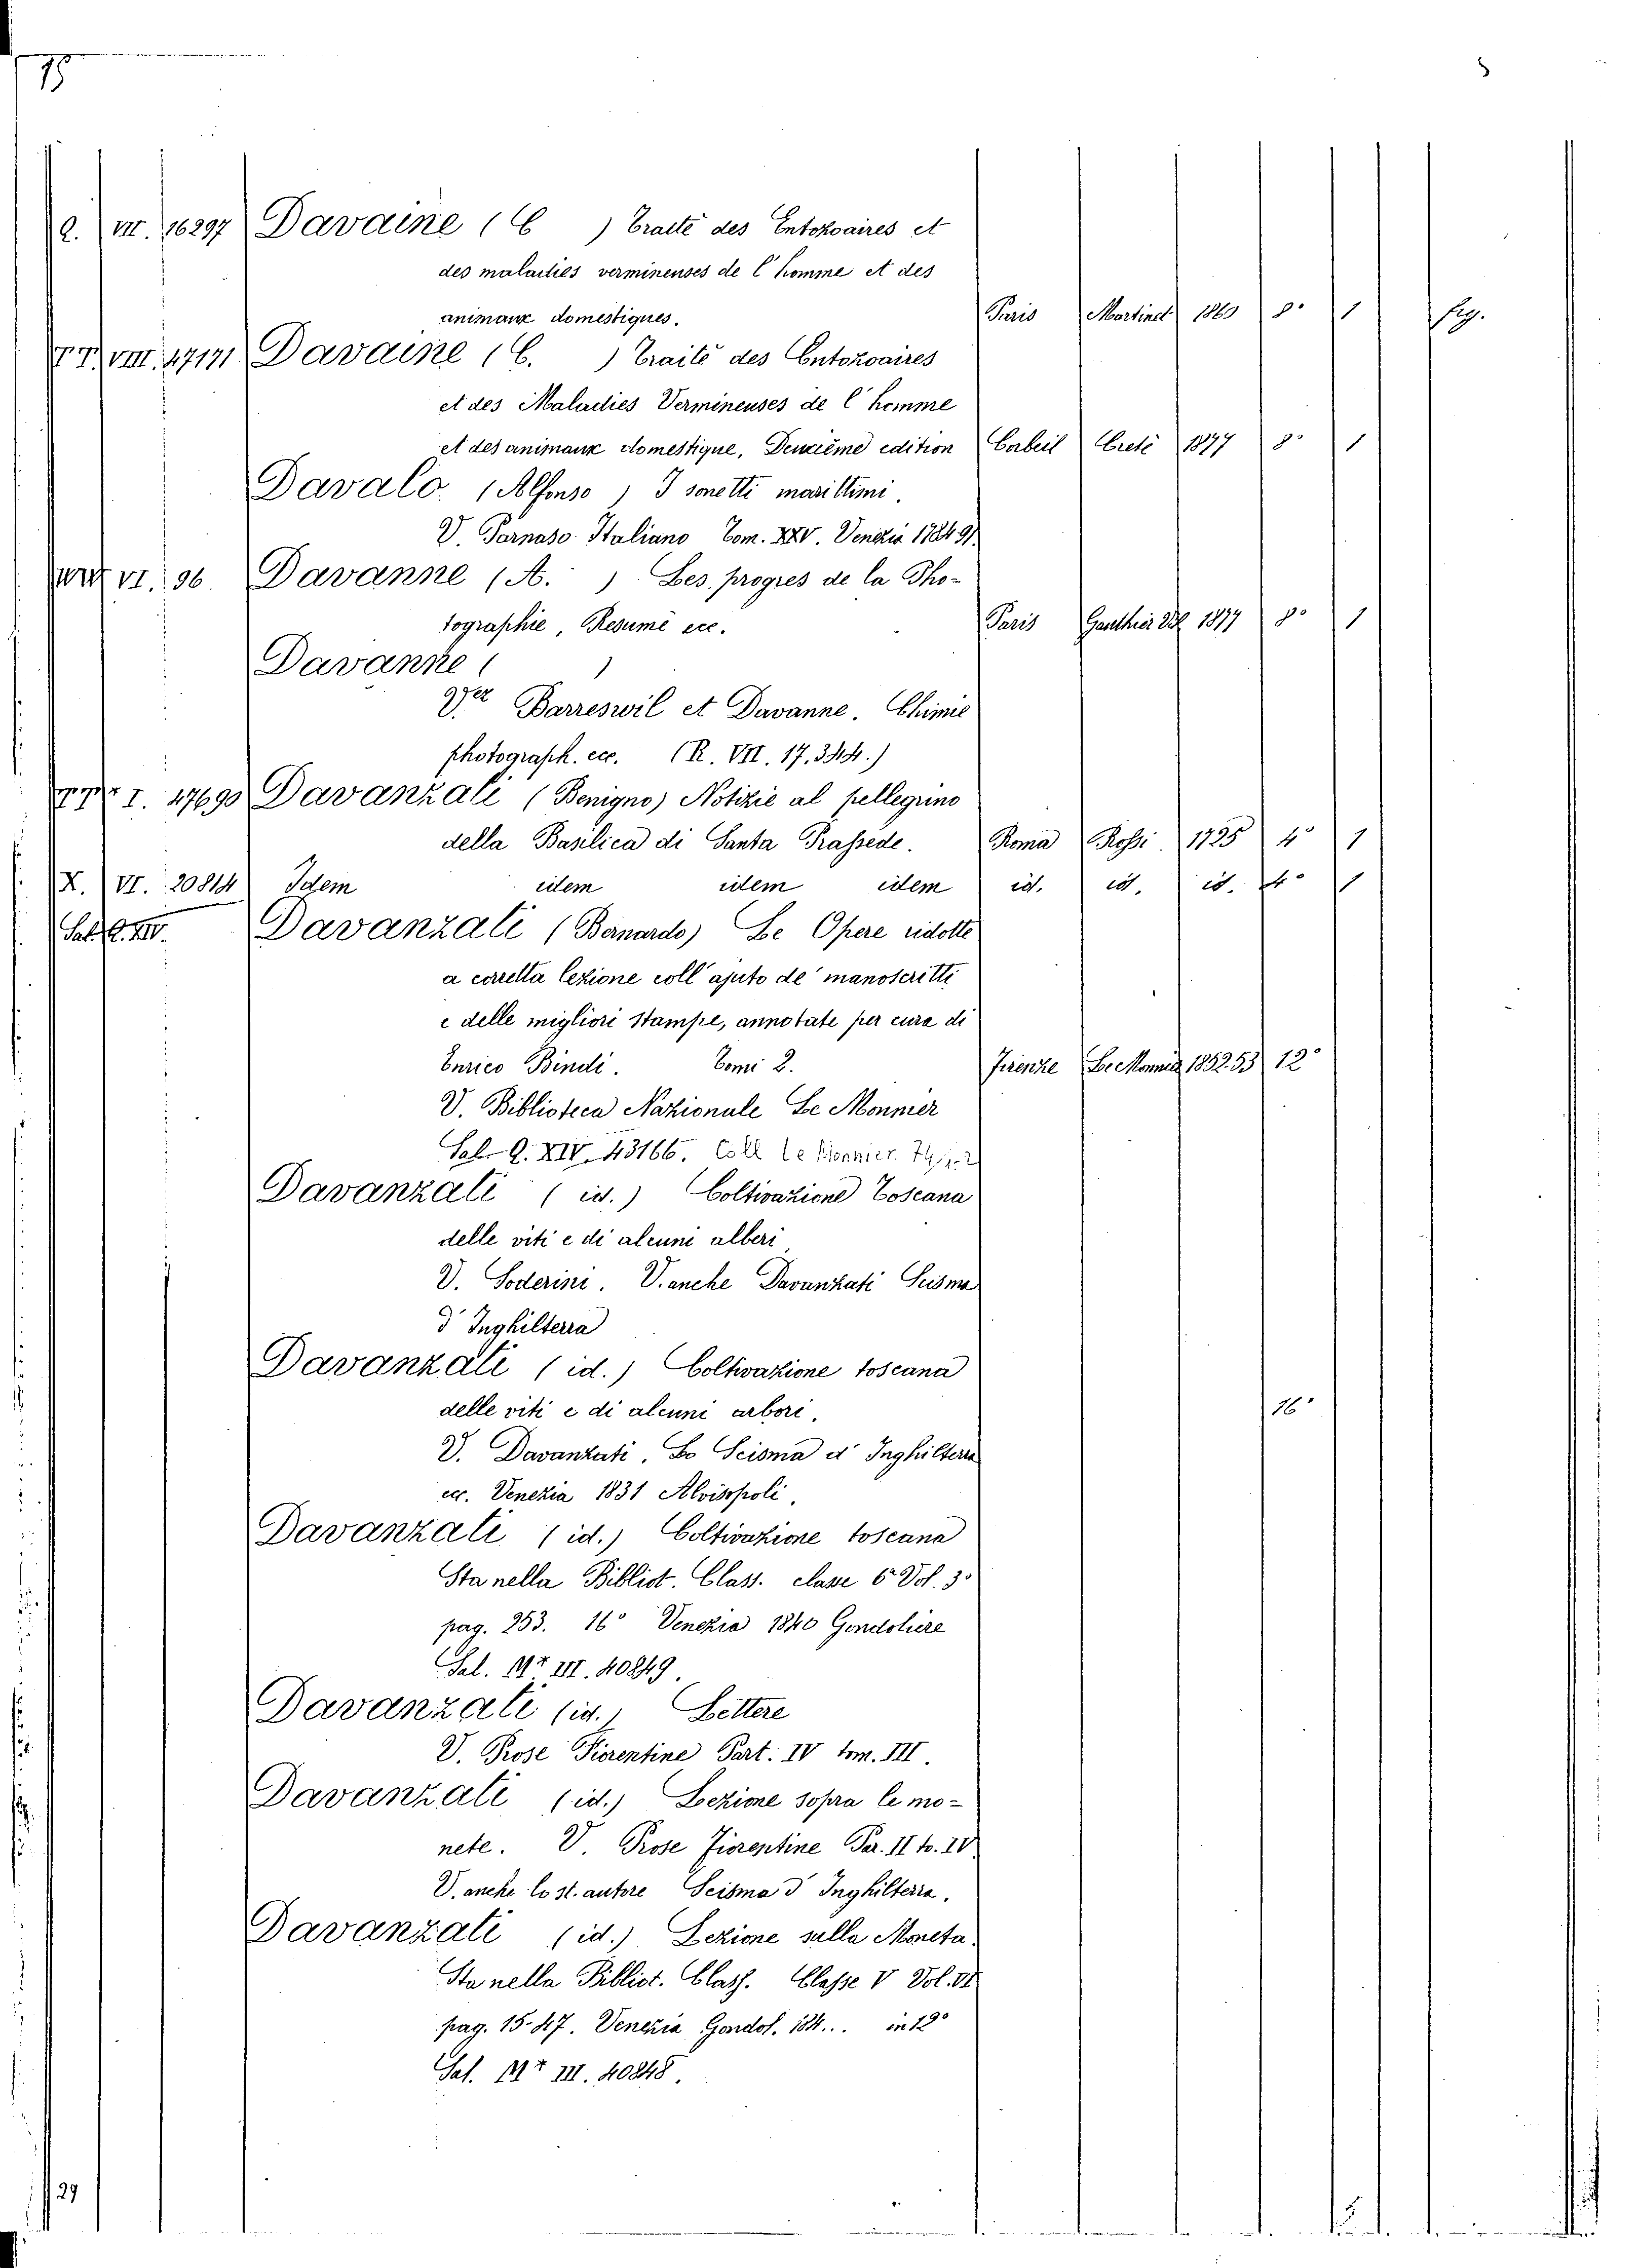 75
Q. VII. 16297 Davaine ( C ) Traité des Entozoaires et
des maladies verminenses de l'homme et des
animaux domestiques. Paris Martinet 1860 8° 1 fig.
VIII. 47171 Davaine ( C. ) Traité des Entozoaires
et des Maladies Vermineuses de l'homme
et des animaux domestique, Deuxième edition Corbeil Creté 1877 8° 1
Davalo (Alfonso) I sonetti marittimi.
V. Parnaso Italiano Tom. XXV. Venezia 1784 91
VI. 36. Davanne (A. ) Les progres de la Pho-
tographie, Resumé ecc. Paris Gauthier Vil 1877 8° 1
Davanne ( )
Ver Barreswil et Davanne. Chimie
photograph. ecc. (R. VII. 17.344.)
I. 47690 Davanzali (Benigno) Notizie al pellegrino
della Basilica di Santa Prassede. Roma Rossi 1725 4° 1
X. VI. 20814 Idem idem idem idem id. id. id. 4° 1
Sal. Q. XIV. Davanzali (Bernardo) Le Opere ridotte
a corretta lezione coll'ajuto de' manoscritti
e delle migliori stampe, annotate per cura di
Enrico Bindi. Tomi 2. Firenze Le Monnier 1852.53 12°
V. Biblioteca Nazionale Le Monnier
Sal. Q. XIV. 43166. Coll Le Monnier. 74
Davanzali (id.) Coltivazione Toscana
delle viti e di alcuni alberi
V. Soderini. V. anche Davanzati Scisma
d'Inghilterra
Davanzali (id.) Coltivazione toscana
delle viti e di alcuni arbori. 16°
V. Davanzati, Lo Scisma d'Inghilterra
ecc. Venezia 1831 Alvisopoli.
Davanzali (id.) Coltivazione toscana
Sta nella Bibliot. Class. classe 6ª Vol. 3°
pag. 253. 16° Venezia 1840 Gondoliere
Sal. III. 40849.
Davanzali (id.) Lettere
V. Prose Fiorentine Part. IV tom. III.
Davanzali (id.) Lezione sopra le mo-
nete. V. Prose Fiorentine Par. II to. IV
V. anche lo st. autore Scisma d'Inghilterra.
Davanzali (id.) Lezione sulla Moneta.
Sta nella Bibliot. Class. Classe V Vol. VI
pag. 15-47. Venezia Gondol. 184... in 12°
Sal. III. 40848.
29